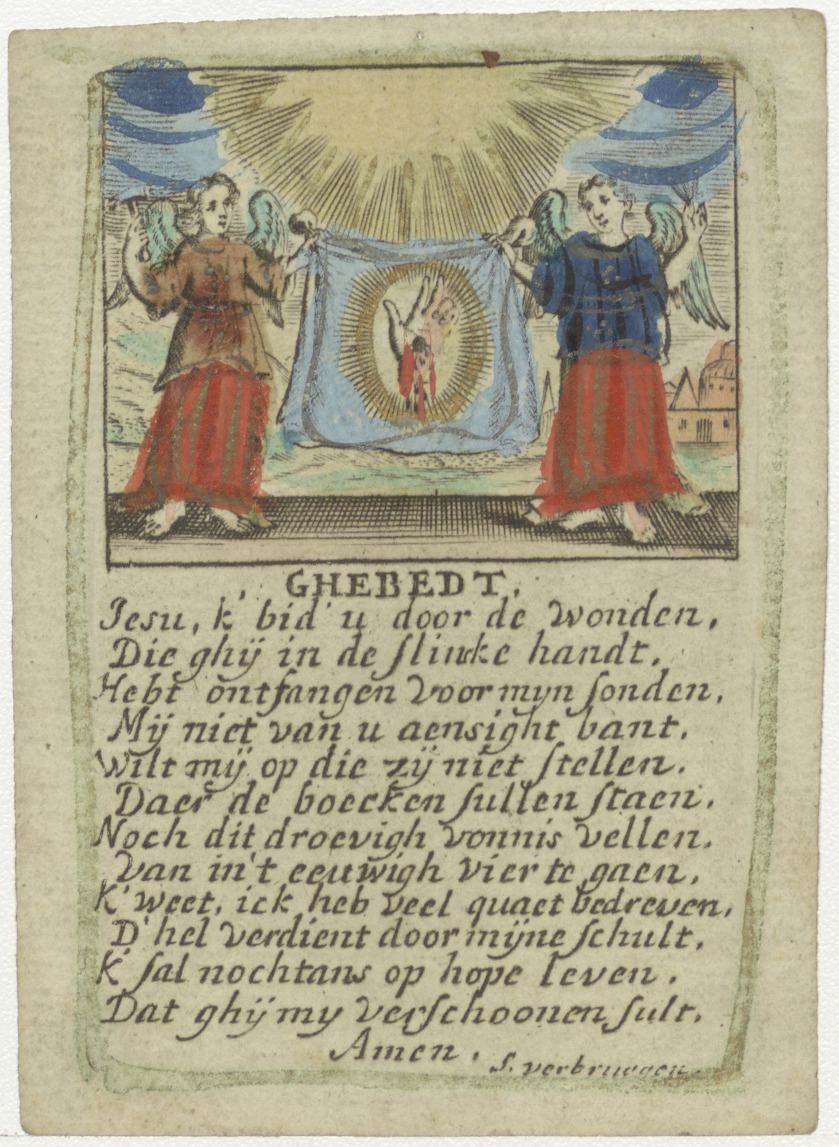 GHEBEDT.
Jesu, k' bid' u door de wonden,
Die ghij in de slinke handt,
Hebt ontfangen voor mijn sonden,
Mij niet van u aensight bant.
Wilt mij op die zij niet stellen.
Daer de boecken sullen staen,
Noch dit droevigh vonnis vellen.
Van in't eeuwigh vier te gaen,
K' weet, ick heb veel quaet bedreven,
D' hel verdient door mijne schult,
K' sal nochtans op hope leven,
Dat ghij my verschoonen sult.
Amen.
S. verbruggen.